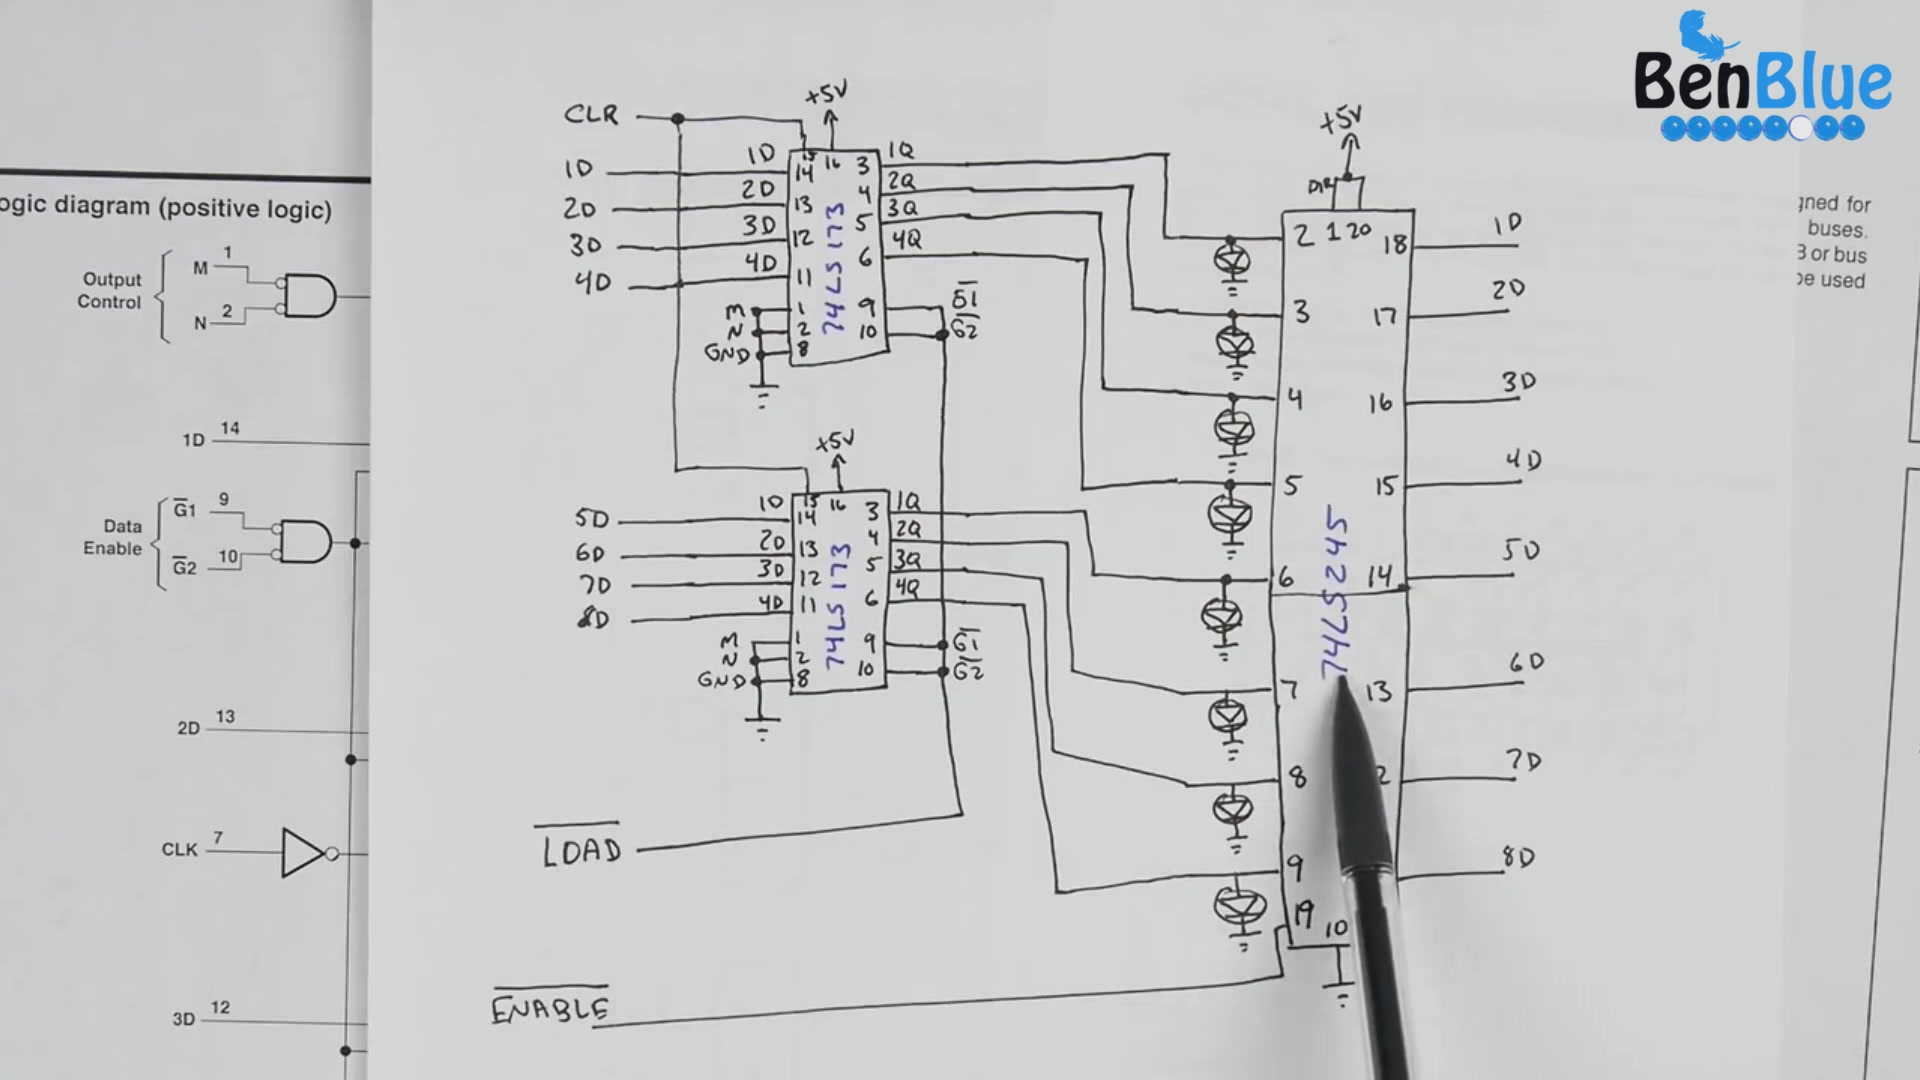 BenBlue
ogic diagram (positive logic)
Output
Control
M
1
N
2
1D
14
Data
Enable
G1
9
G2
10
2D
13
CLK
7
3D
12
CLR
+5V
1D
2D
3D
4D
1D
2D
3D
4D
15
16
14
13
12
11
3
4
5
6
1Q
2Q
3Q
4Q
74LS173
M
N
GND
1
2
8
9
10
G1
G2
+5V
5D
6D
7D
8D
1D
2D
3D
4D
15
16
14
13
12
11
3
4
5
6
1Q
2Q
3Q
4Q
74LS173
M
N
GND
1
2
8
9
10
G1
G2
LOAD
ENABLE
+5V
DIR
2
1
20
18
3
17
4
16
5
15
6
14
7
13
8
9
19
10
74LS245
1D
2D
3D
4D
5D
6D
7D
8D
gned for
buses.
B or bus
be used